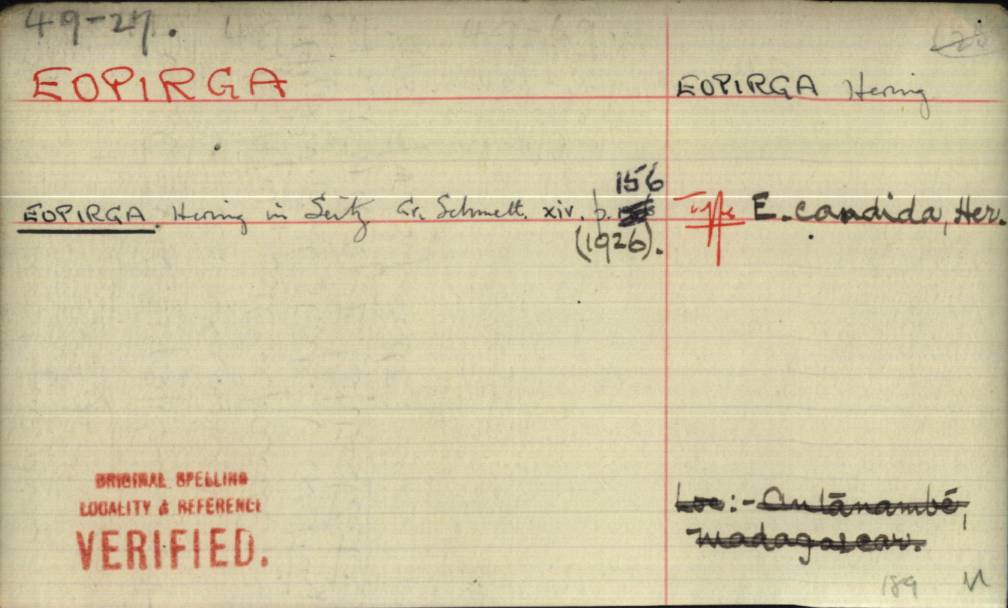 49-27.
EOPIRGA
EOPIRGA Hering
156
EOPIRGA. Hering in Seitz Gr. Schmett. xiv. p.
(1926).
Type E. candida, Her.
ORIGINAL SPELLING
LOCALITY & REFERENCE
VERIFIED.
Loc:- Antānambé,
Madagascar.
189 N